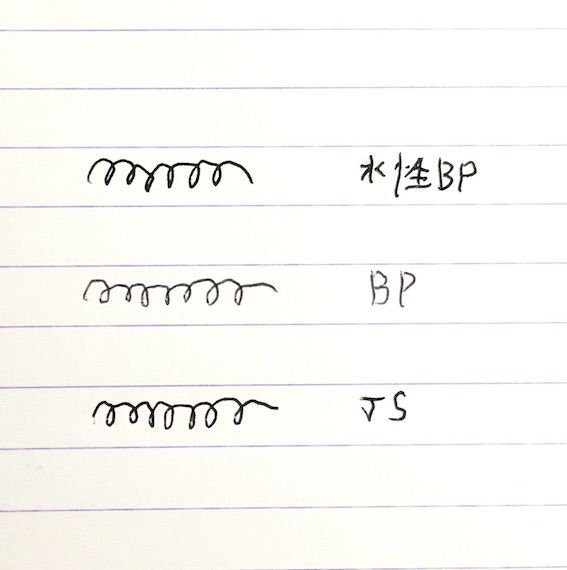 水性BP
BP
JS